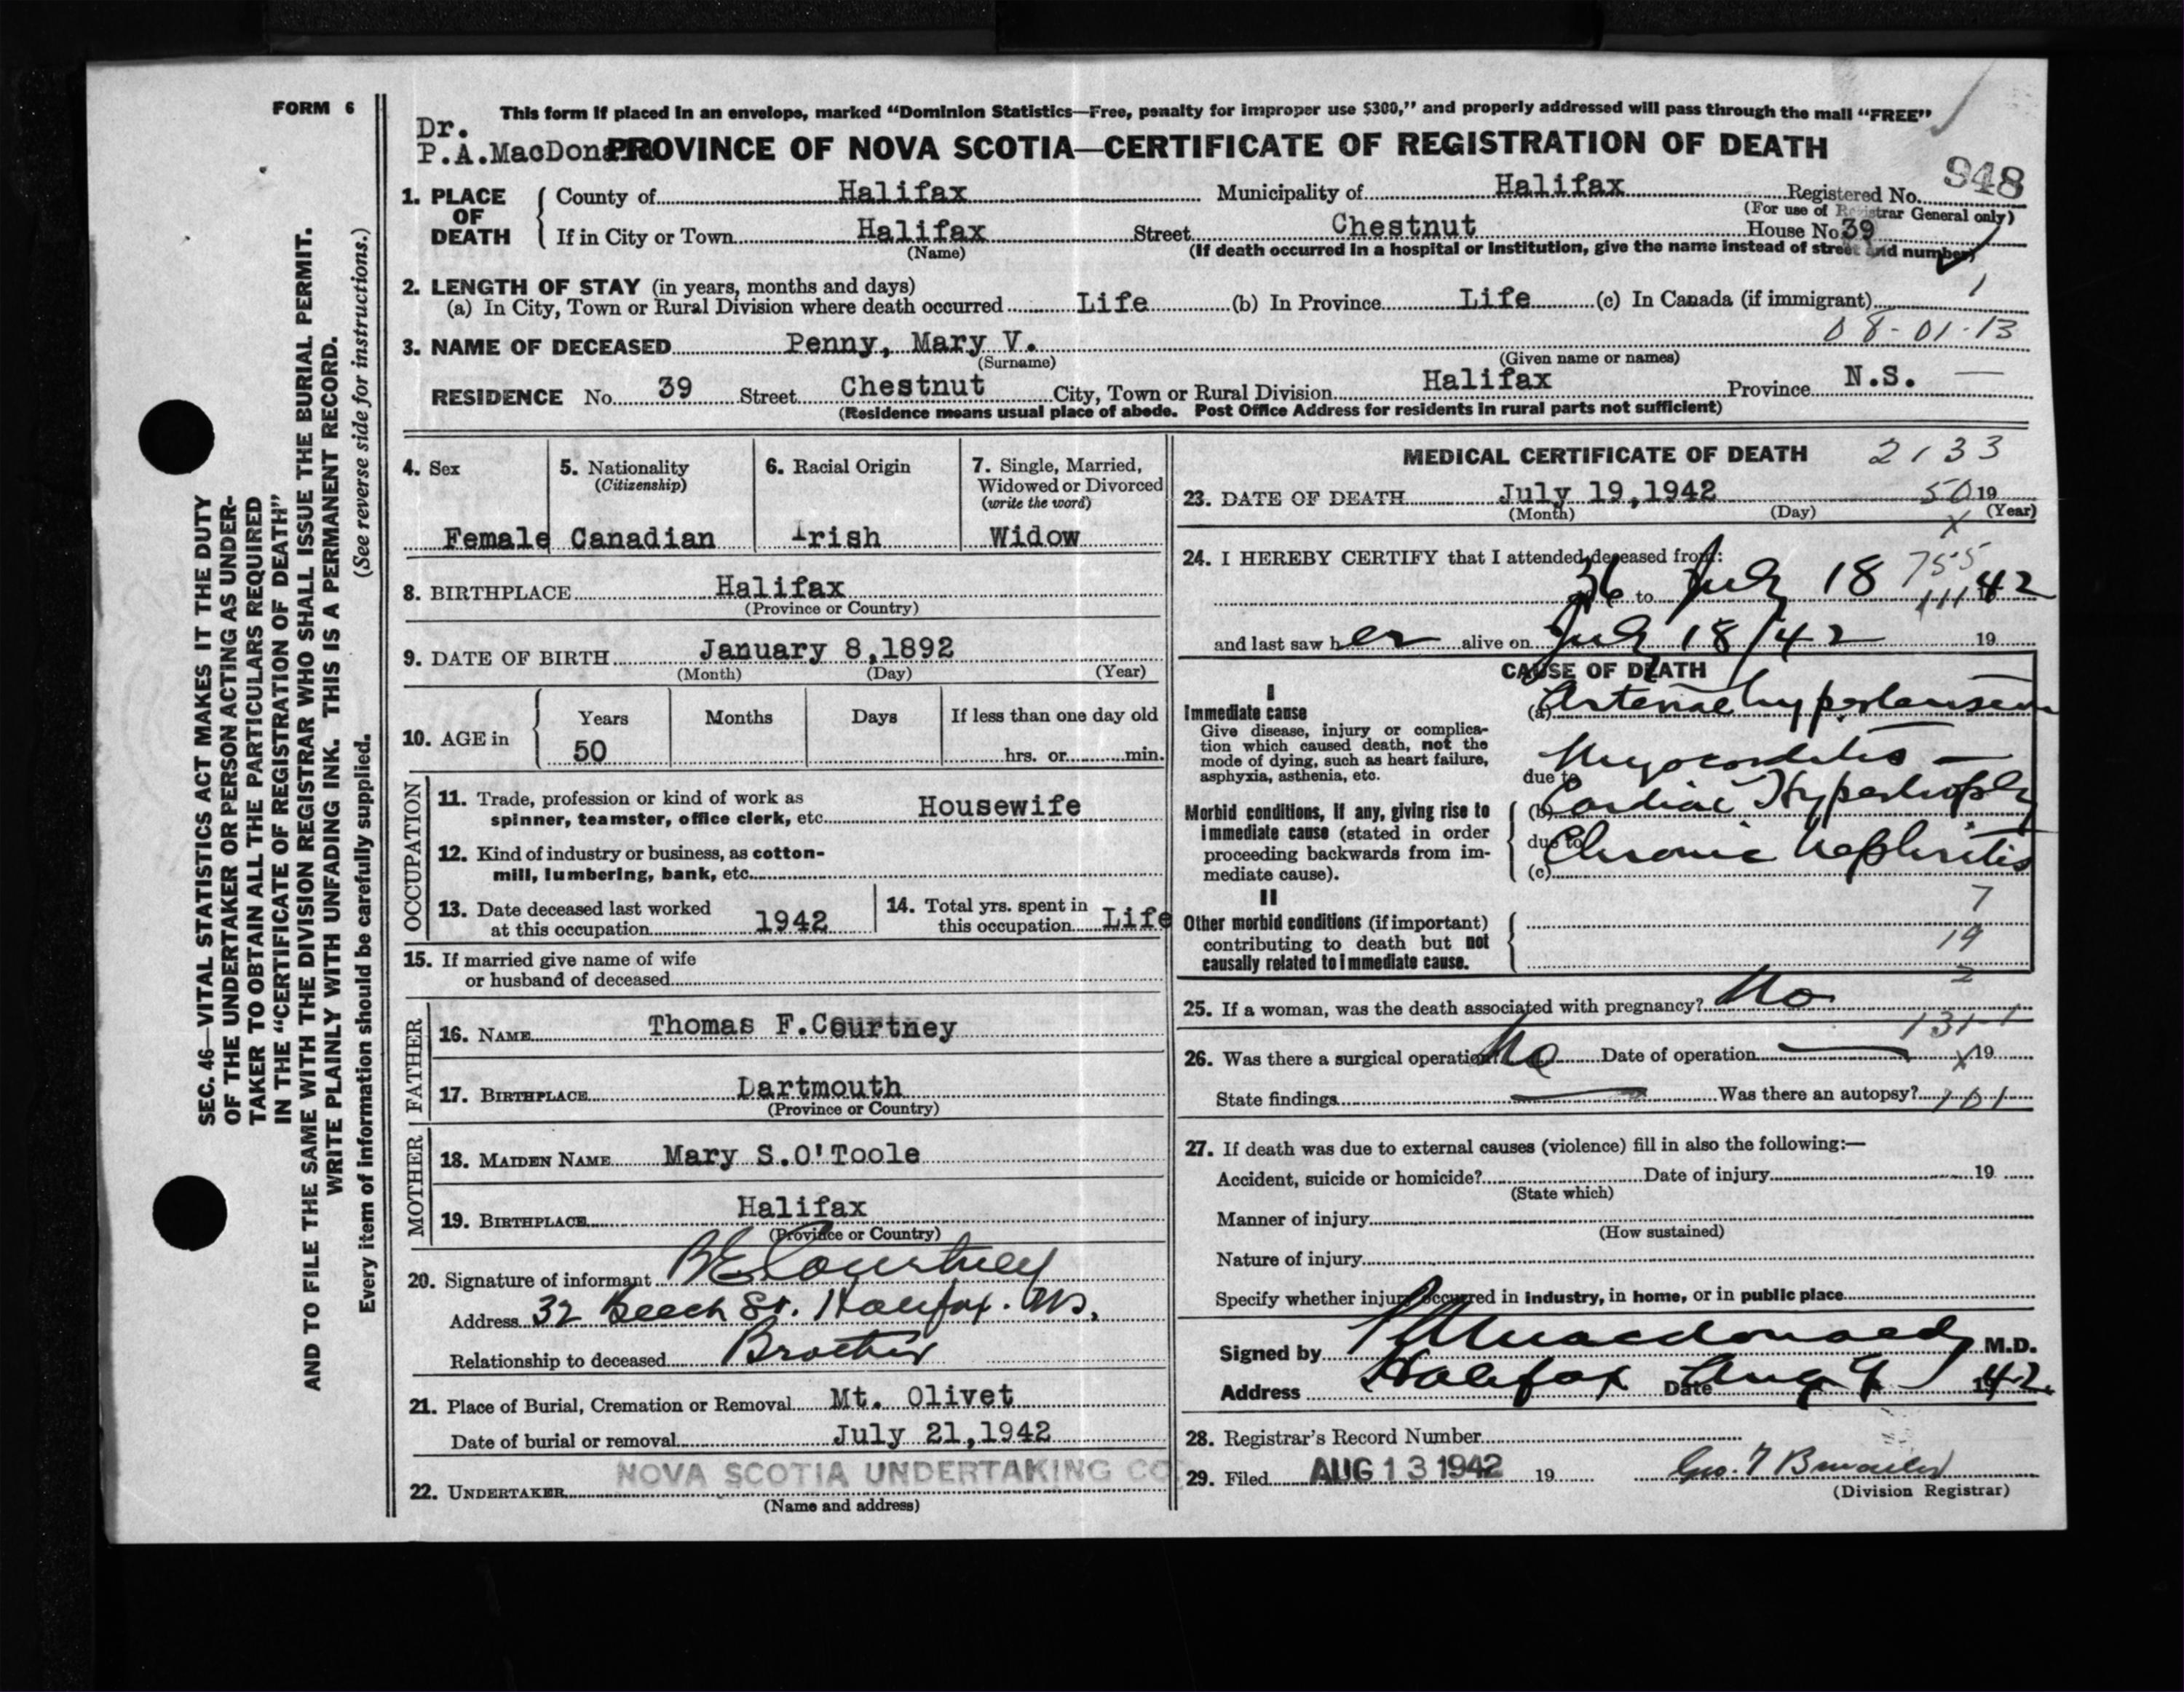 FORM 6
This form if placed in an envelope, marked “Dominion Statistics—Free, penalty for improper use $300,” and properly addressed will pass through the mail “FREE”
Dr.
P.A.MacDona
PROVINCE OF NOVA SCOTIA—CERTIFICATE OF REGISTRATION OF DEATH
948
1. PLACE OF DEATH
County of Halifax Municipality of Halifax Registered No.
(For use of Registrar General only)
If in City or Town Halifax Street Chestnut House No. 39
(Name) (If death occurred in a hospital or institution, give the name instead of street and number)
2. LENGTH OF STAY (in years, months and days)
(a) In City, Town or Rural Division where death occurred Life (b) In Province Life (c) In Canada (if immigrant)
08-01-13
3. NAME OF DECEASED Penny, Mary V.
(Surname) (Given name or names)
RESIDENCE No. 39 Street Chestnut City, Town or Rural Division Halifax Province N.S.
(Residence means usual place of abode. Post Office Address for residents in rural parts not sufficient)
4. Sex Female
5. Nationality (Citizenship) Canadian
6. Racial Origin Irish
7. Single, Married, Widowed or Divorced (write the word) Widow
8. BIRTHPLACE Halifax
(Province or Country)
9. DATE OF BIRTH January 8,1892
(Month) (Day) (Year)
10. AGE in Years Months Days If less than one day old
50 hrs. or min.
OCCUPATION
11. Trade, profession or kind of work as spinner, teamster, office clerk, etc. Housewife
12. Kind of industry or business, as cotton-mill, lumbering, bank, etc.
13. Date deceased last worked at this occupation 1942
14. Total yrs. spent in this occupation Life
15. If married give name of wife or husband of deceased
FATHER
16. NAME Thomas F.Courtney
17. BIRTHPLACE Dartmouth
(Province or Country)
MOTHER
18. MAIDEN NAME Mary S.O'Toole
19. BIRTHPLACE Halifax
(Province or Country)
20. Signature of informant B E Courtney
Address 32 Beech St. Halifax. N.S.
Relationship to deceased Brother
21. Place of Burial, Cremation or Removal Mt. Olivet
Date of burial or removal July 21,1942
22. UNDERTAKER NOVA SCOTIA UNDERTAKING CO
(Name and address)
MEDICAL CERTIFICATE OF DEATH 2133
23. DATE OF DEATH July 19,1942 50 19
(Month) (Day) (Year)
x
24. I HEREBY CERTIFY that I attended deceased from:
755
36 to July 18 42
and last saw her alive on July 18/42 19
CAUSE OF DEATH
I
Immediate cause
Give disease, injury or complication which caused death, not the mode of dying, such as heart failure, asphyxia, asthenia, etc.
(a) Arterial hypertension
Myocarditis —
due to
Morbid conditions, if any, giving rise to immediate cause (stated in order proceeding backwards from immediate cause).
(b) Cardiac Hypertrophy
due to
(c) Chronic Nephritis
II
Other morbid conditions (if important) contributing to death but not causally related to immediate cause.
7
19
2
25. If a woman, was the death associated with pregnancy? No
131-1
26. Was there a surgical operation? No Date of operation — x 19
State findings — Was there an autopsy? 101
27. If death was due to external causes (violence) fill in also the following:—
Accident, suicide or homicide? Date of injury 19
(State which)
Manner of injury
(How sustained)
Nature of injury
Specify whether injury occurred in industry, in home, or in public place
Signed by P A Macdonald M.D.
Address Halifax Date Aug 9 1942
28. Registrar's Record Number
29. Filed AUG 13 1942 19
(Division Registrar)
SEC. 46—VITAL STATISTICS ACT MAKES IT THE DUTY
OF THE UNDERTAKER OR PERSON ACTING AS UNDER-
TAKER TO OBTAIN ALL THE PARTICULARS REQUIRED
IN THE “CERTIFICATE OF REGISTRATION OF DEATH”
AND TO FILE THE SAME WITH THE DIVISION REGISTRAR WHO SHALL ISSUE THE BURIAL PERMIT.
WRITE PLAINLY WITH UNFADING INK. THIS IS A PERMANENT RECORD.
Every item of information should be carefully supplied. (See reverse side for instructions.)